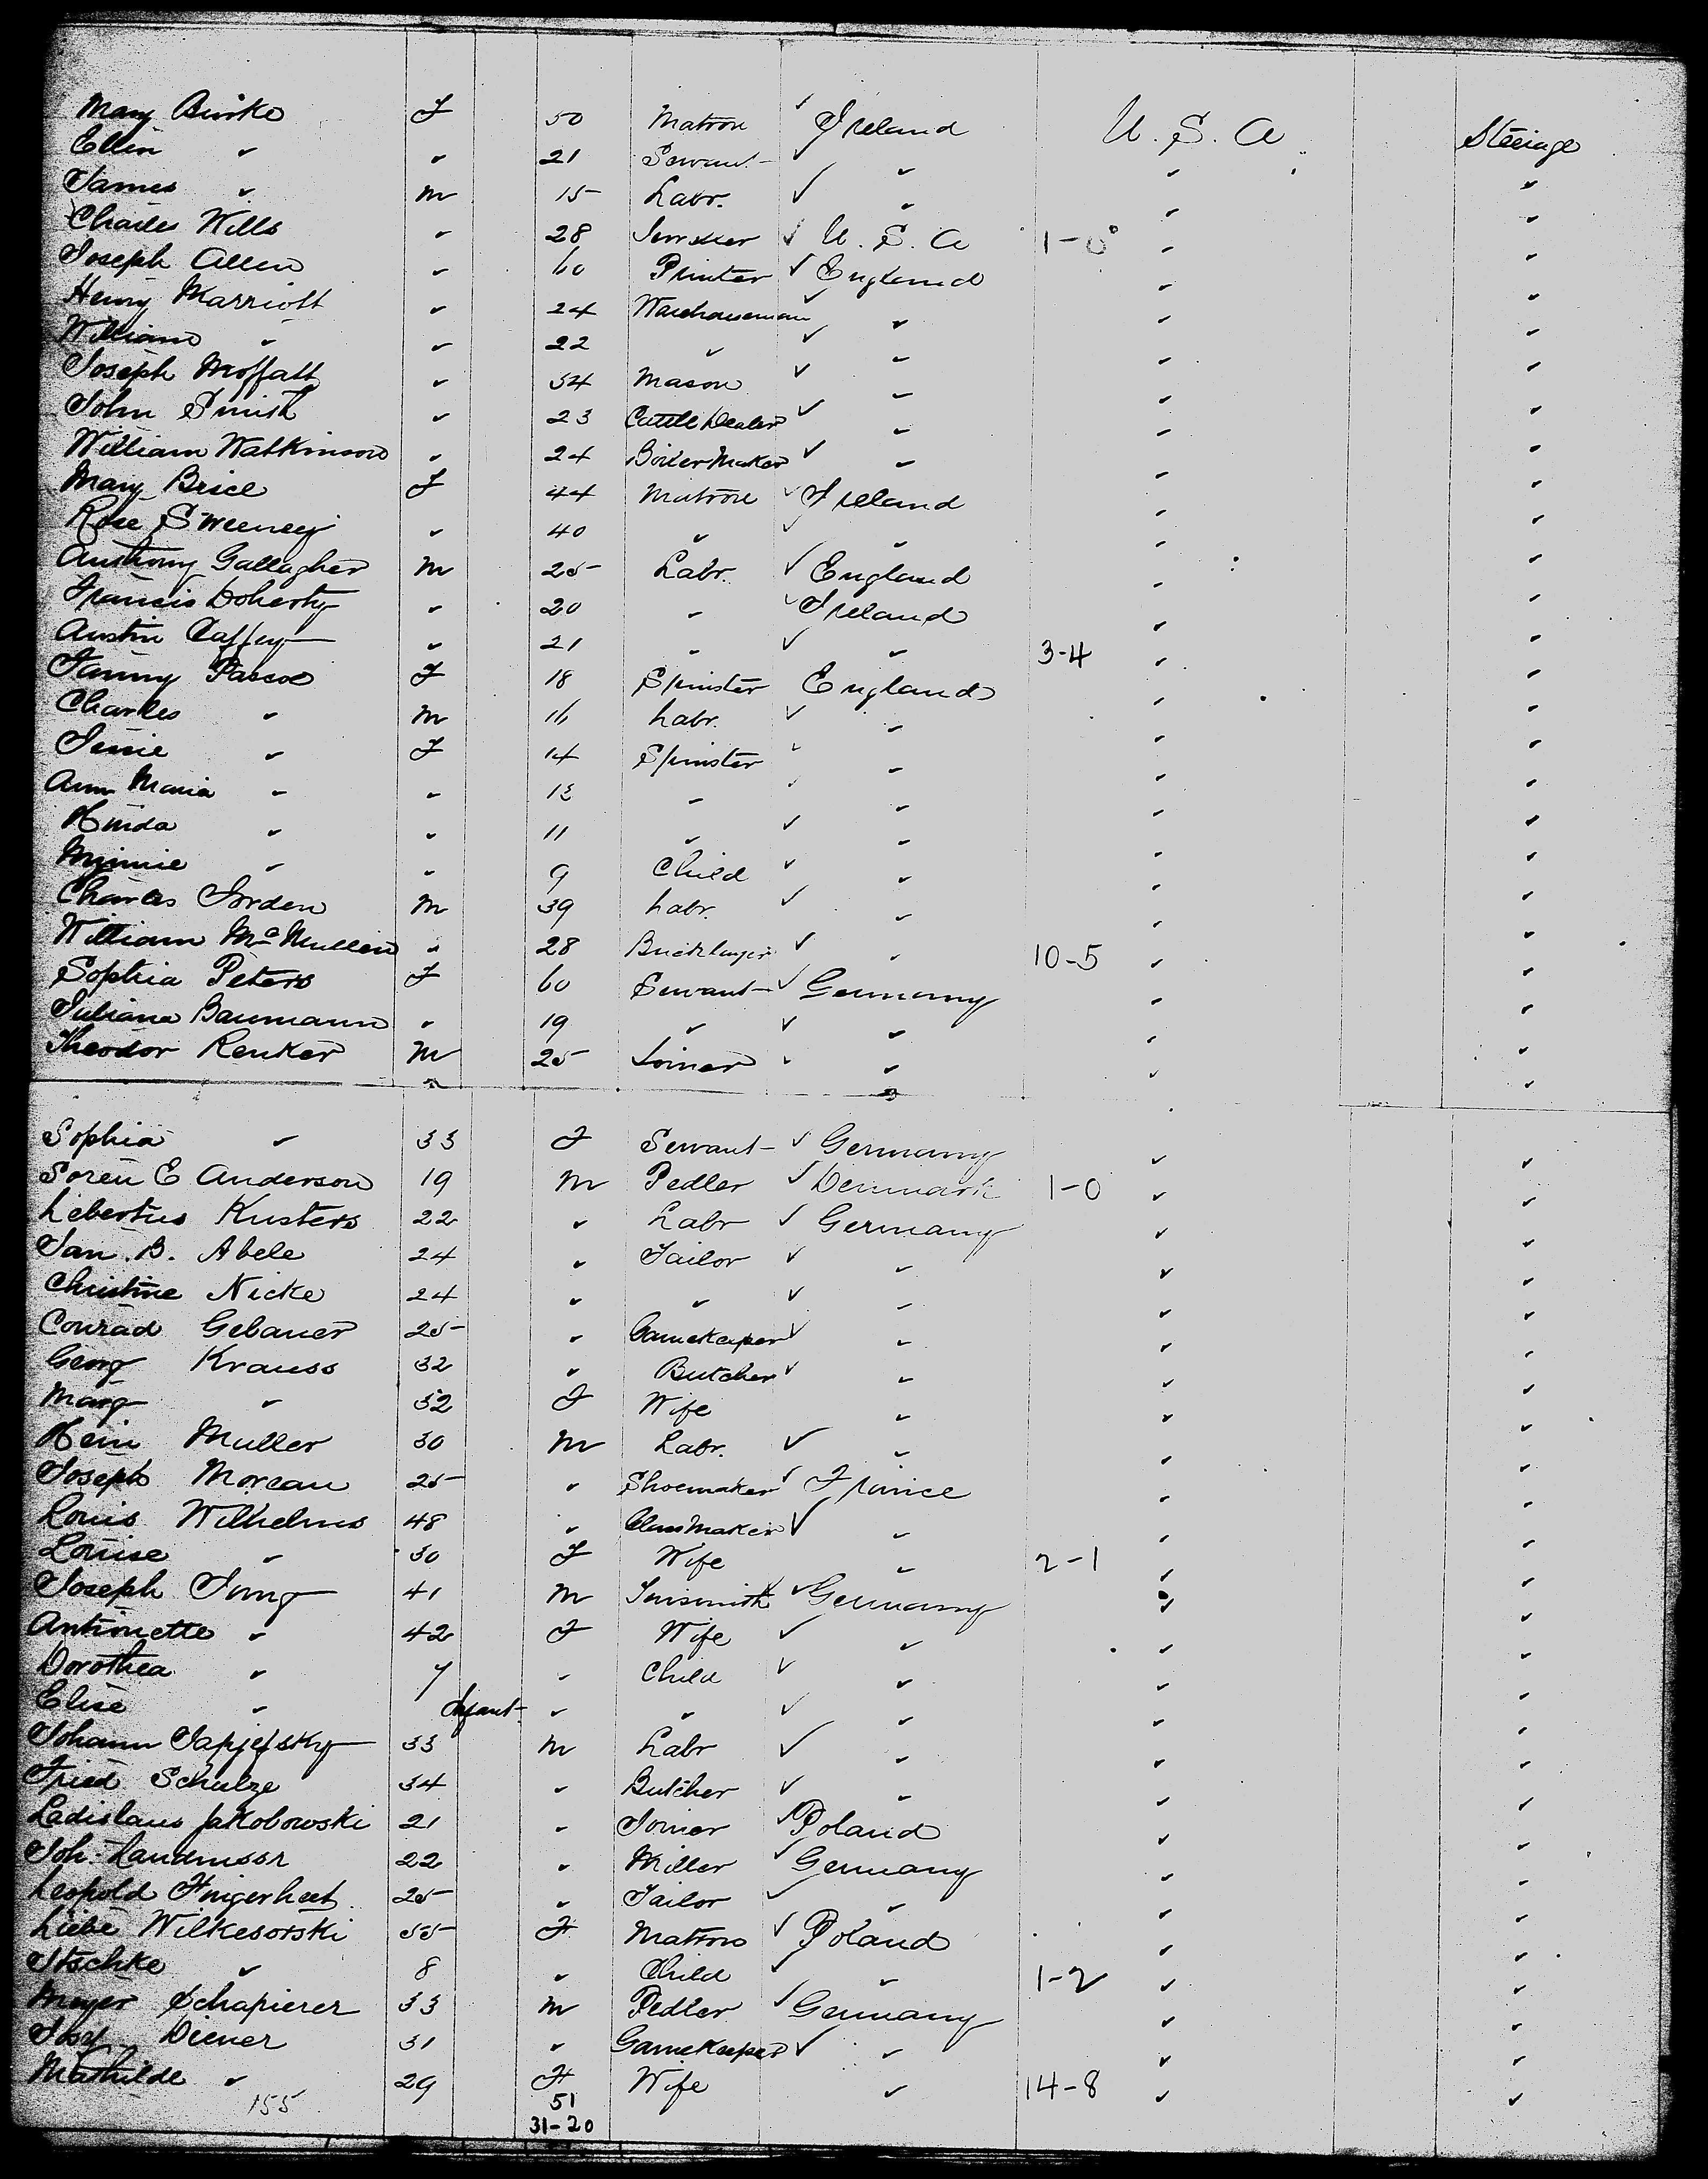 Mary Burke F 50 Matron ✓ Ireland U. S. A Steerage
Ellen " " 21 Servant ✓ " " "
James " M 15 Labr. ✓ " " "
Charles Wills " 28 ✓ U. S. A 1-0 " "
Joseph Allen " 60 Printer ✓ England " "
Henry Marriott " 24 Warehouseman ✓ " " "
William " " 22 " ✓ " " "
Joseph Moffatt " 34 Mason ✓ " " "
John Smith " 23 Cattle Dealer ✓ " " "
William Watkinson " 24 Boiler Maker ✓ " " "
Mary Brice F 44 Matron ✓ Ireland " "
Rose Sweeney " 40 " ✓ " " "
Anthony Gallagher M 25 Labr. ✓ England " "
Francis Doherty " 20 " ✓ Ireland " "
Austin Caffey " 21 " ✓ " 3-4 " "
Fanny Pascoe F 18 Spinster England " "
Charles " M 16 Labr. ✓ " " "
Jessie " F 14 Spinster ✓ " " "
Ann Maria " " 12 " ✓ " " "
" " 11 " ✓ " " "
Minnie " " 9 Child ✓ " " "
Charles Jorden M 39 Labr. ✓ " " "
William McMullen " 28 Bricklayer ✓ " 10-5 " "
Sophia Peters F 60 Servant ✓ Germany " "
Juliana Baumann " 19 " ✓ " " "
Theodor Renker M 25 Joiner ✓ " " "
Sophia " 33 F Servant ✓ Germany " "
Soren E Anderson 19 M Pedler ✓ Denmark 1-0 " "
Lebertus Kusters 22 " Labr ✓ Germany " "
Jan. B. Abele 24 " Tailor ✓ " " "
Christine Nicke 24 " " ✓ " " "
Conrad Gebauer 25 " Gamekeeper ✓ " " "
Georg Krauss 32 " Butcher ✓ " " "
Marg " 32 F Wife " " "
Hein Muller 30 M Labr. ✓ " " "
Joseph Moreau 25 " Shoemaker ✓ France " "
Louis Wilhelms 48 " Glass Maker ✓ " " "
Louise " 30 F Wife " 2-1 " "
Joseph Jung 41 M Tinsmith ✓ Germany " "
Antionette " 42 F Wife ✓ " " "
Dorothea " 7 " Child ✓ " " "
Elise " Infant " " ✓ " " "
Johann 33 M Labr ✓ " " "
Fried Schulze 34 " Butcher ✓ " " "
Ladislaus Jakobowski 21 " Joiner ✓ Poland " "
Joh. 22 " Miller ✓ Germany " "
Leopold Fingerhut 25 " Tailor ✓ " " "
Liebe Wilkesorski 55 F Matron ✓ Poland " "
Itschke " 8 " Child ✓ " 1-2 " "
Meyer Schapierer 33 M Pedler ✓ Germany " "
Diener 31 " Gamekeeper ✓ " " "
Mathilde " 29 F Wife " 14-8 " "
155 51
31-20